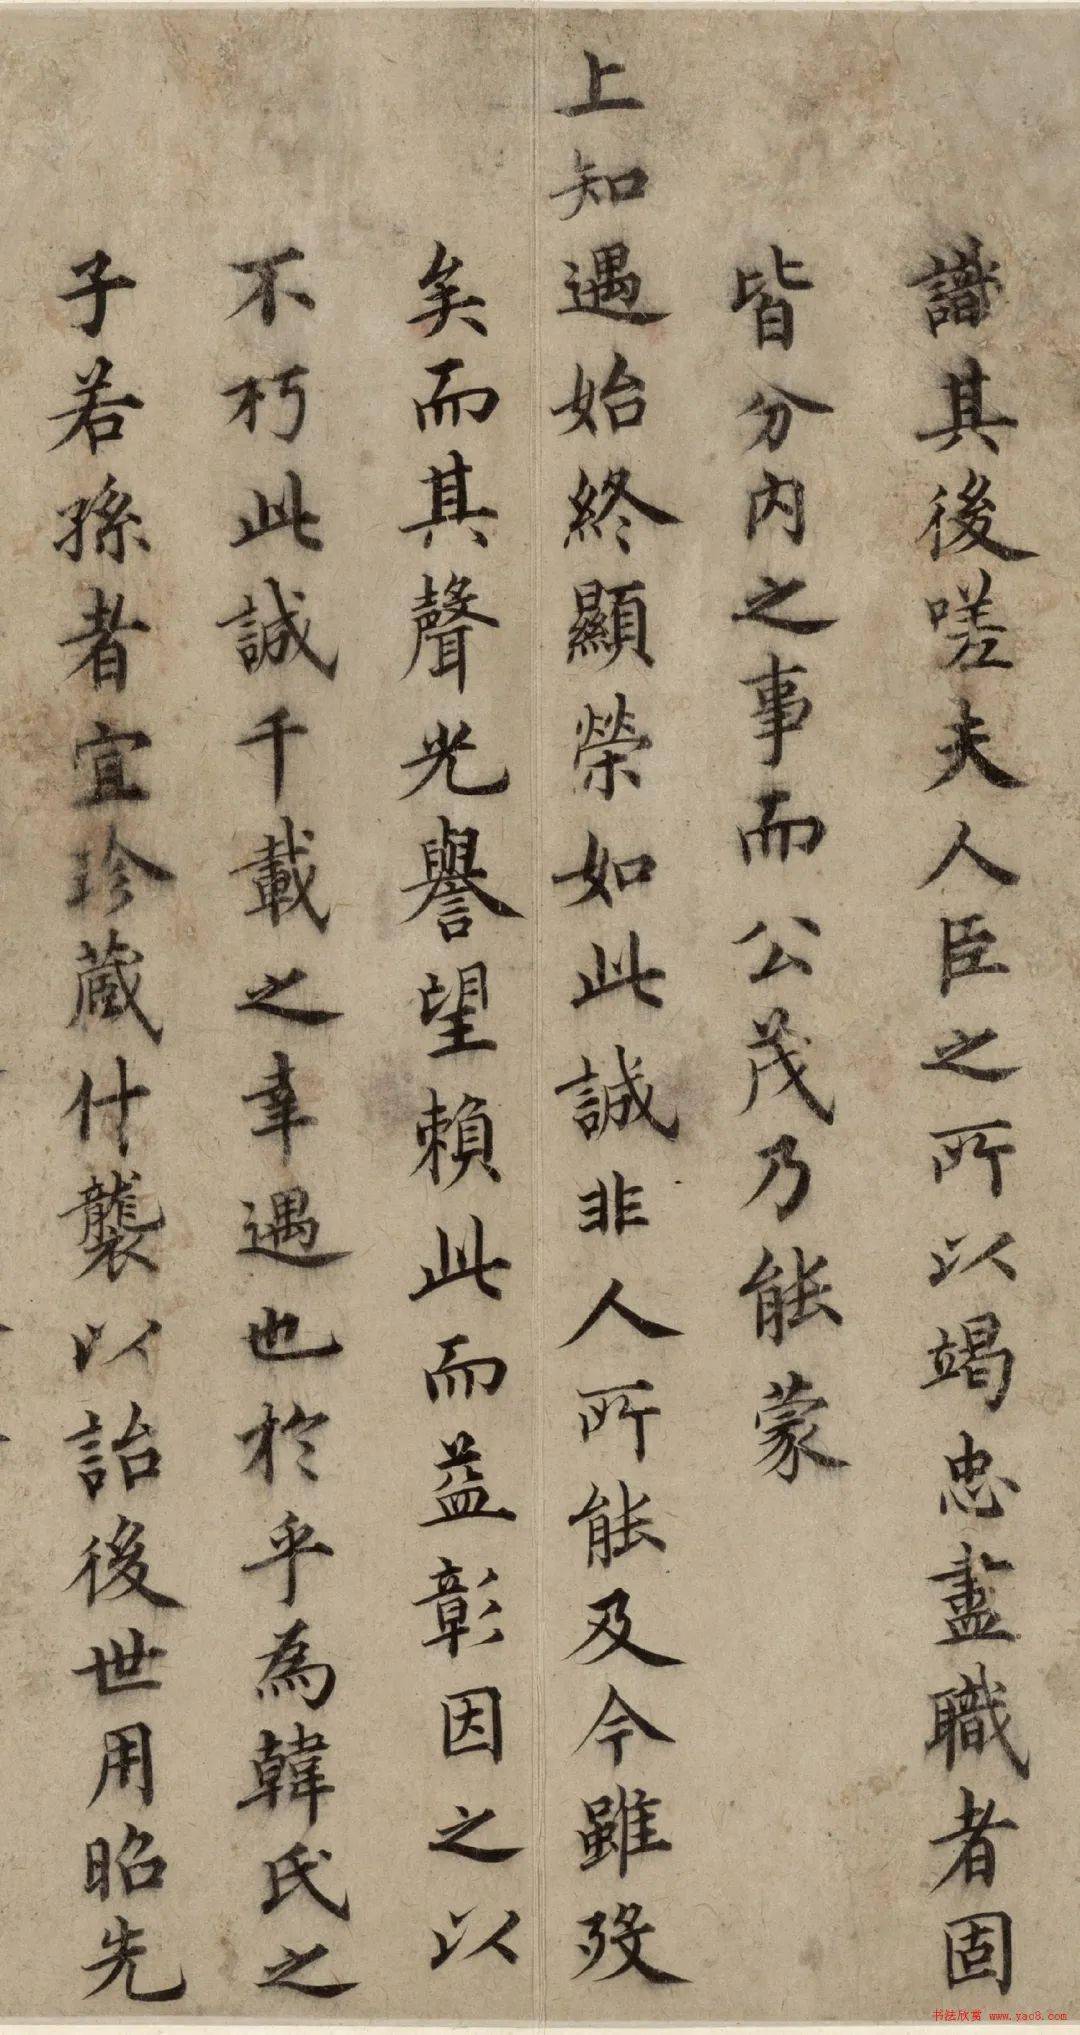 識其後嗟夫人臣之所以竭忠盡職者固
皆分内之事而公茂乃能蒙
上知遇始終顯榮如此誠非人所能及今雖歿
矣而其聲光譽望賴此而益彰因之以
不朽此誠千載之幸遇也於乎為韓氏之
子若孫者宜珍蔵什襲以詒後世用昭先
书法欣赏 www.yac8.com